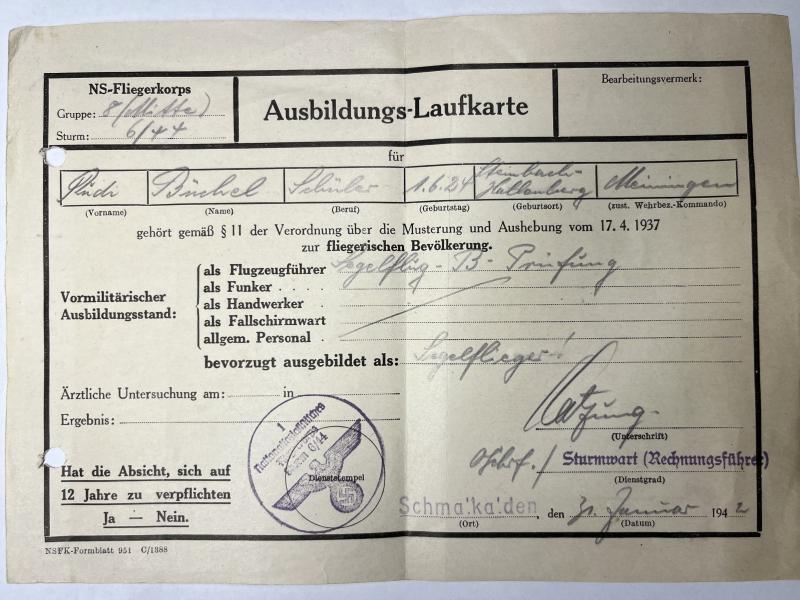 NS-Fliegerkorps
Gruppe: 8 (Mitte)
Sturm: 6/44
Ausbildungs-Laufkarte
Bearbeitungsvermerk:
für
Rudi Büchel Schüler 1.6.24 Steinbach-Hallenberg Meiningen
(Vorname) (Name) (Beruf) (Geburtstag) (Geburtsort) (zust. Wehrbez.-Kommando)
gehört gemäß § 11 der Verordnung über die Musterung und Aushebung vom 17. 4. 1937
zur fliegerischen Bevölkerung.
Vormilitärischer
Ausbildungsstand:
als Flugzeugführer Segelflug-B-Prüfung
als Funker
als Handwerker
als Fallschirmwart
allgem. Personal
bevorzugt ausgebildet als: Segelflieger!
Ärztliche Untersuchung am: in
Ergebnis:
(Unterschrift)
Hat die Absicht, sich auf
12 Jahre zu verpflichten
Ja — Nein.
1
Nationalsozialistisches
Sturm 6/44
Dienststempel
Sturmwart (Rechnungsführer)
(Dienstgrad)
Schmalkalden, den 31. Januar 1942
(Ort) (Datum)
NSFK-Formblatt 951 C/1388